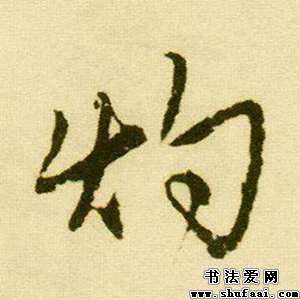 灼
书法爱网
www.shufaai.com